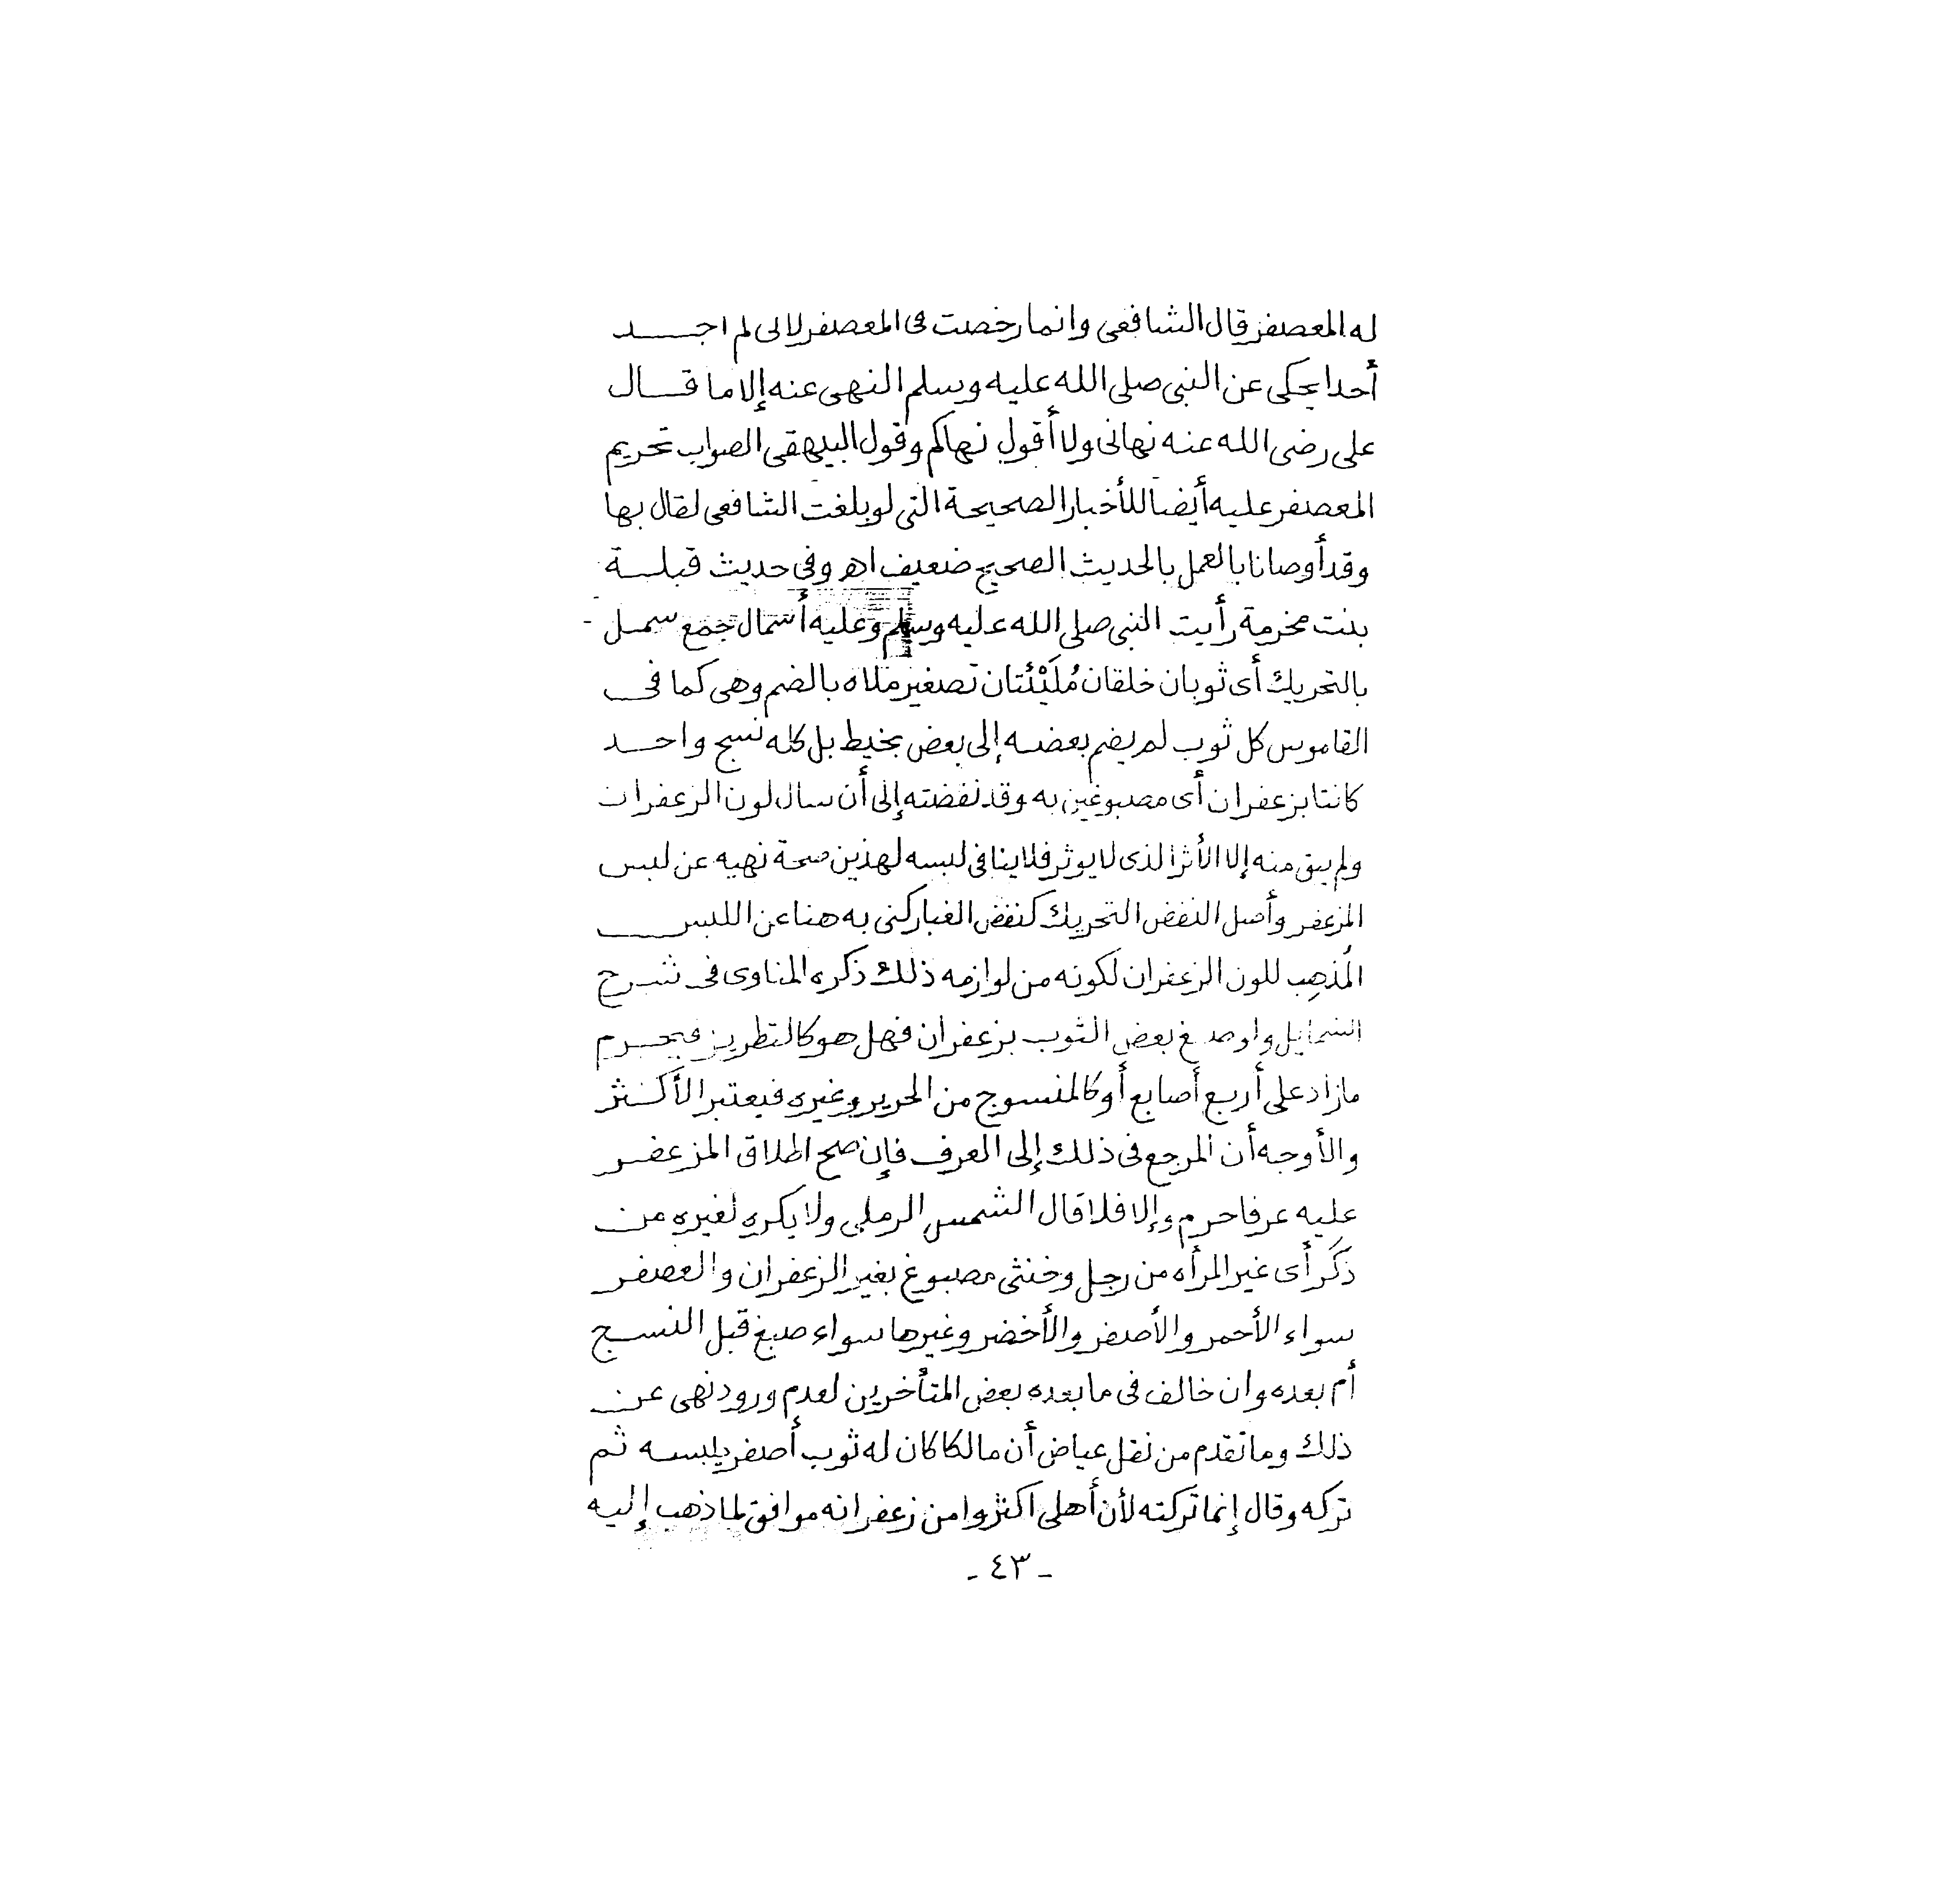 له المعصفر قال الشافعى وانما رخصت فى المعصفر لانى لم اجد
أحدا يحكى عن النبى صلى الله عليه وسلم النهى عنه إلا ما قال
على رضى الله عنه نهانى ولا أقول نهاكم وقول البيهقى الصواب تحريم
المعصفر عليه أيضا للأخبار الصحيحة التى لو بلغت الشافعى لقال بها
وقد أوصانا بالعمل بالحديث الصحيح ضعيف اهـ وفى حديث قيلة
بنت مخرمة رأيت النبى صلى الله عليه وسلم وعليه أسمال جمع سمل
بالتحريك أى ثوبان خلقان مُلَيْئَتان تصغير ملاه بالضم وهى كما فى
القاموس كل ثوب لم يضم بعضه إلى بعض بخيط بل كله نسج واحد
كانتا بزعفران أى مصبوغين به وقد نفضته إلى أن سال لون الزعفران
ولم يبق منه إلا الأثر الذى لا يوثر فلا ينافى لبسه لهذين صحة نهيه عن لبس
المزعفر وأصل النفض التحريك كنفض الغبار كنى به هنا عن اللبس
المُذهِب للون الزعفران لكونه من لوازمه ذلك ذكره المناوى فى شرح
الشمايل ولو صبغ بعض الثوب بزعفران فهل هو كالتطريز فيحرم
مازاد على أربع أصابع أو كالمنسوج من الحرير وغيره فيعتبر الأكثر
والأوجه أن المرجع فى ذلك إلى العرف فإن صح اطلاق المزعفر
عليه عرفا حرم وإلا فلا قال الشمس الرملى ولا يكره لغيره من
ذَكَر أى غير المرأه من رجل وخنثى مصبوغ بغير الزعفران والعصفر
سواء الأحمر والأصفر والأخضر وغيرها سواء صبغ قبل النسج
أم بعده وان خالف فى ما بعده بعض المتأخرين لعدم ورود نهى عن
ذلك وما تقدم من نقل عياض أن مالكا كان له ثوب أصفر يلبسه ثم
تركه وقال إنما تركته لأن أهلى اكثروا من زعفرانه موافق لما ذهب إليه
- ٤٣ -